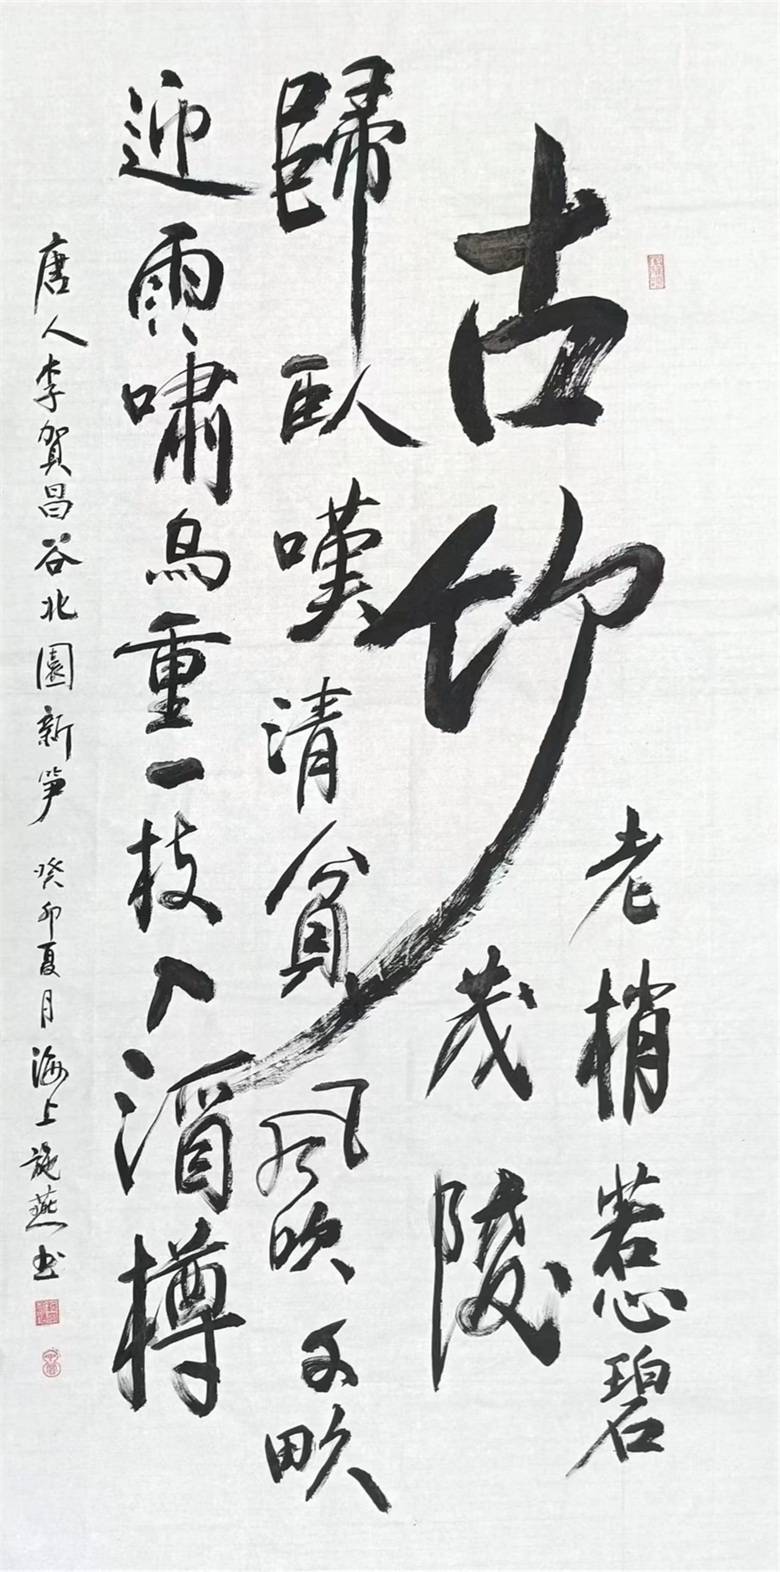 古竹
老梢惹碧
茂陵
歸臥嘆清貧風吹畂
迎雨嘯鳥重一枝入酒樽
唐人李賀昌谷北園新笋 癸卯夏月海上施燕书